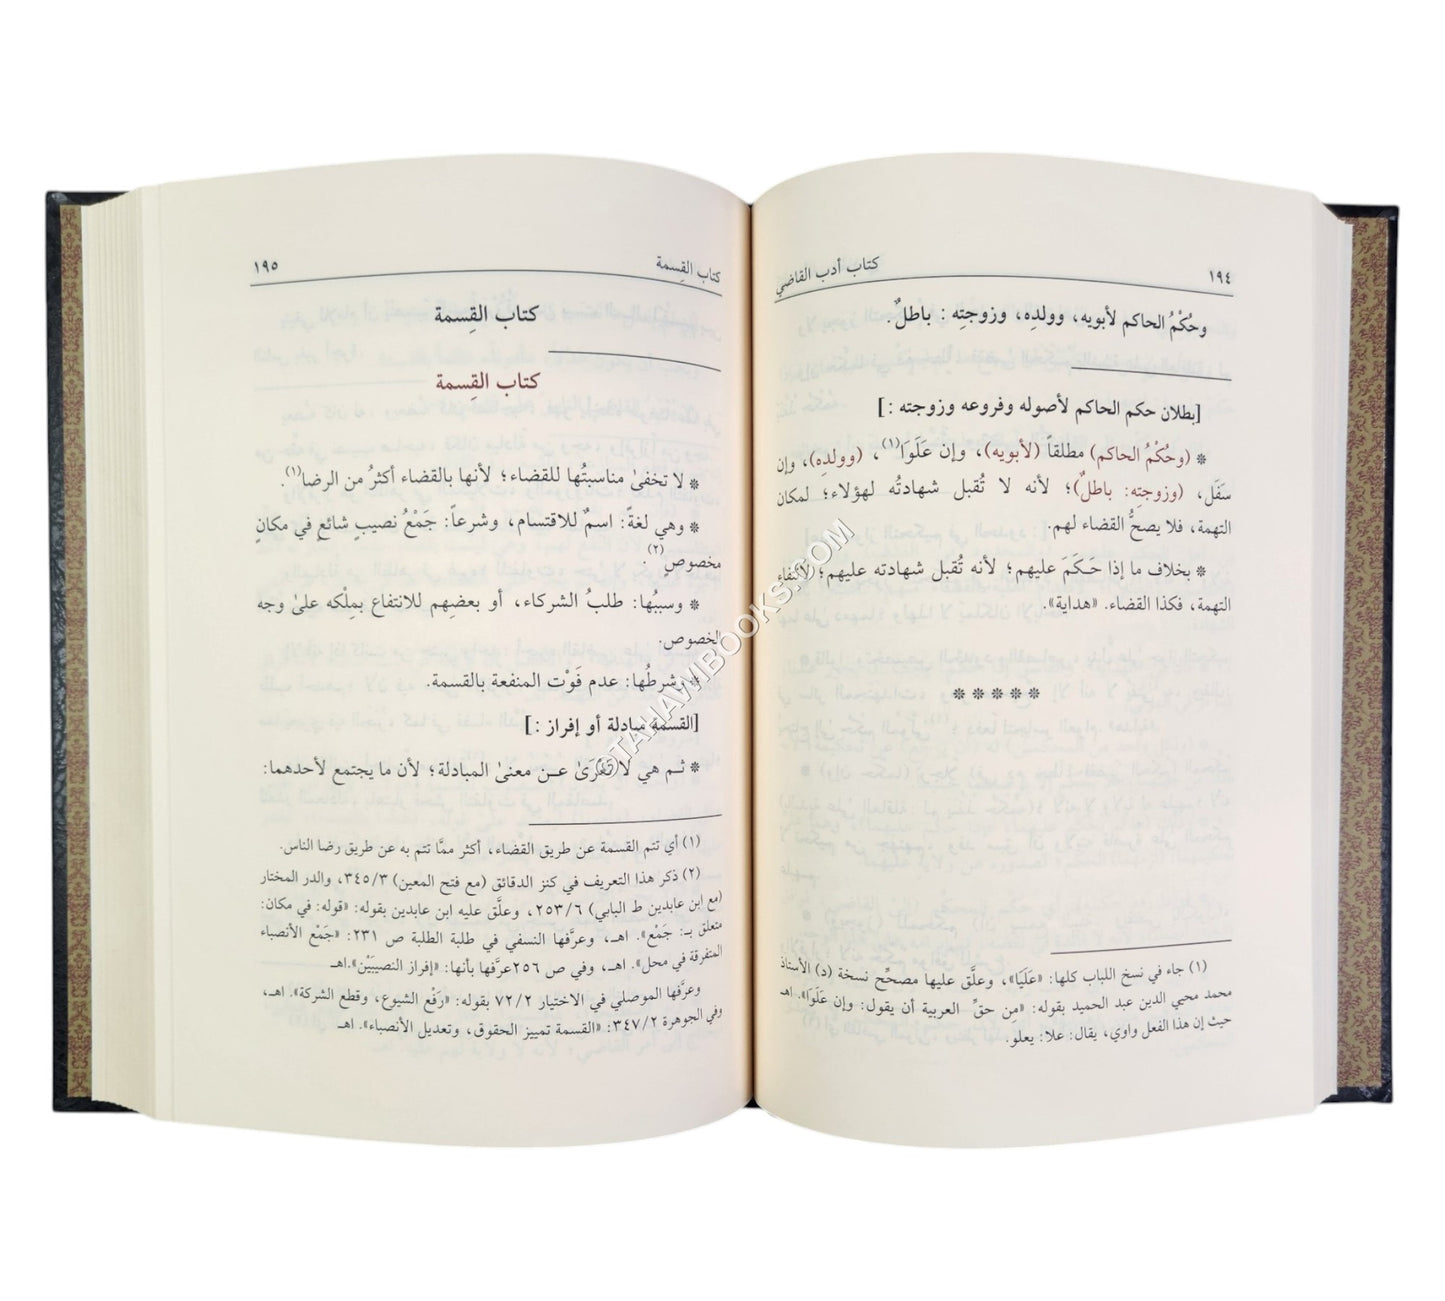 ١٩٤
كتاب أدب القاضي
وحُكْمُ الحاكم لأبويه، وولدِه، وزوجتِه : باطلٌ.
[بطلان حكم الحاكم لأصوله وفروعه وزوجته :]
* (وحُكْمُ الحاكم) مطلقاً (لأبويه)، وإن عَلَوَا(١)، (وولدِه)، وإن
سَفَل، (وزوجتِه: باطلٌ)؛ لأنه لا تُقبل شهادتُه لهؤلاء؛ لمكان
التهمة، فلا يصحُّ القضاء لهم.
* بخلاف ما إذا حَكَمَ عليهم؛ لأنه تُقبل شهادته عليهم؛ لانتفاء
التهمة، فكذا القضاء. «هداية».
* * * * *
(١) جاء في نسخ اللباب كلها: «عَلَيَا»، وعلَّق عليها مصحِّح نسخة (د) الأستاذ
محمد محيي الدين عبد الحميد بقوله: «مِن حقِّ العربية أن يقول: وإن عَلَوَا». اهـ
حيث إن هذا الفعل واوي، يقال: علا: يعلو.
كتاب القِسمة
١٩٥
كتاب القِسمة
كتاب القِسمة
* لا تخفىٰ مناسبتُها للقضاء؛ لأنها بالقضاء أكثرُ من الرضا(١).
* وهي لغةً: اسمٌ للاقتسام، وشرعاً: جَمْعُ نصيبٍ شائعٍ في مكانٍ
مخصوصٍ(٢).
* وسببُها: طلبُ الشركاء، أو بعضِهم للانتفاع بمِلْكه علىٰ وجه
الخصوص.
* وشرطُها: عدم فَوْت المنفعة بالقسمة.
[القسمة مبادلة أو إفراز :]
* ثـم هي لا تَعْرَىٰ عـن معنىٰ المبادلة؛ لأن ما يجتمع لأحدهما:
(١) أي تتم القسمة عن طريق القضاء، أكثر ممَّا تتم به عن طريق رضا الناس.
(٢) ذكر هذا التعريف في كنز الدقائق (مع فتح المعين) ٣٤٥/٣، والدر المختار
(مع ابن عابدين ط البابي) ٢٥٣/٦، وعلَّق عليه ابن عابدين بقوله: «قوله: في مكان:
متعلق بـ: جَمْع». اهـ، وعرَّفها النسفي في طلبة الطلبة ص ٢٣١: «جَمْع الأنصباء
المتفرقة في محل». اهـ، وفي ص ٢٥٦عرَّفها بأنها: «إفراز النصيبَيْن».اهـ
وعرَّفها الموصلي في الاختيار ٧٢/٢ بقوله: «رَفْع الشيوع، وقطع الشركة». اهـ،
وفي الجوهرة ٣٤٧/٢: «القسمة تمييز الحقوق، وتعديل الأنصباء». اهـ
OTAHAWIBOOKS.COM